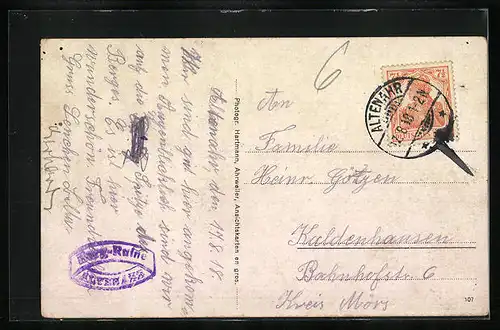 Altenahr, den 19.8.18.
Wir sind gut hier angekomm
men Augenblicklich sind wir
auf die Spitze des
Berges. Es ist hier
wunderschön
Gruss
Burg-Ruine
ALTENAHR
Photogr. Hartmann, Ahrweiler, Ansichtskarten en gros.
6
7½
ALTENAHR
8.18.1-2N
An
Familie
Heinr. Götzen
Kaldenhausen
Bahnhofstr. 6
Kreis Mörs
107